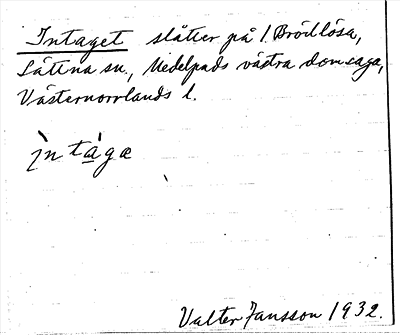 Intaget slåtter på 1 Brödlösa,
Sättna sn., Medelpads västra domsaga,
Västernorrlands l.
ìntàgæ
Valter Jansson 1932.